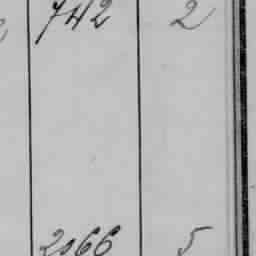 742 2
2066 5